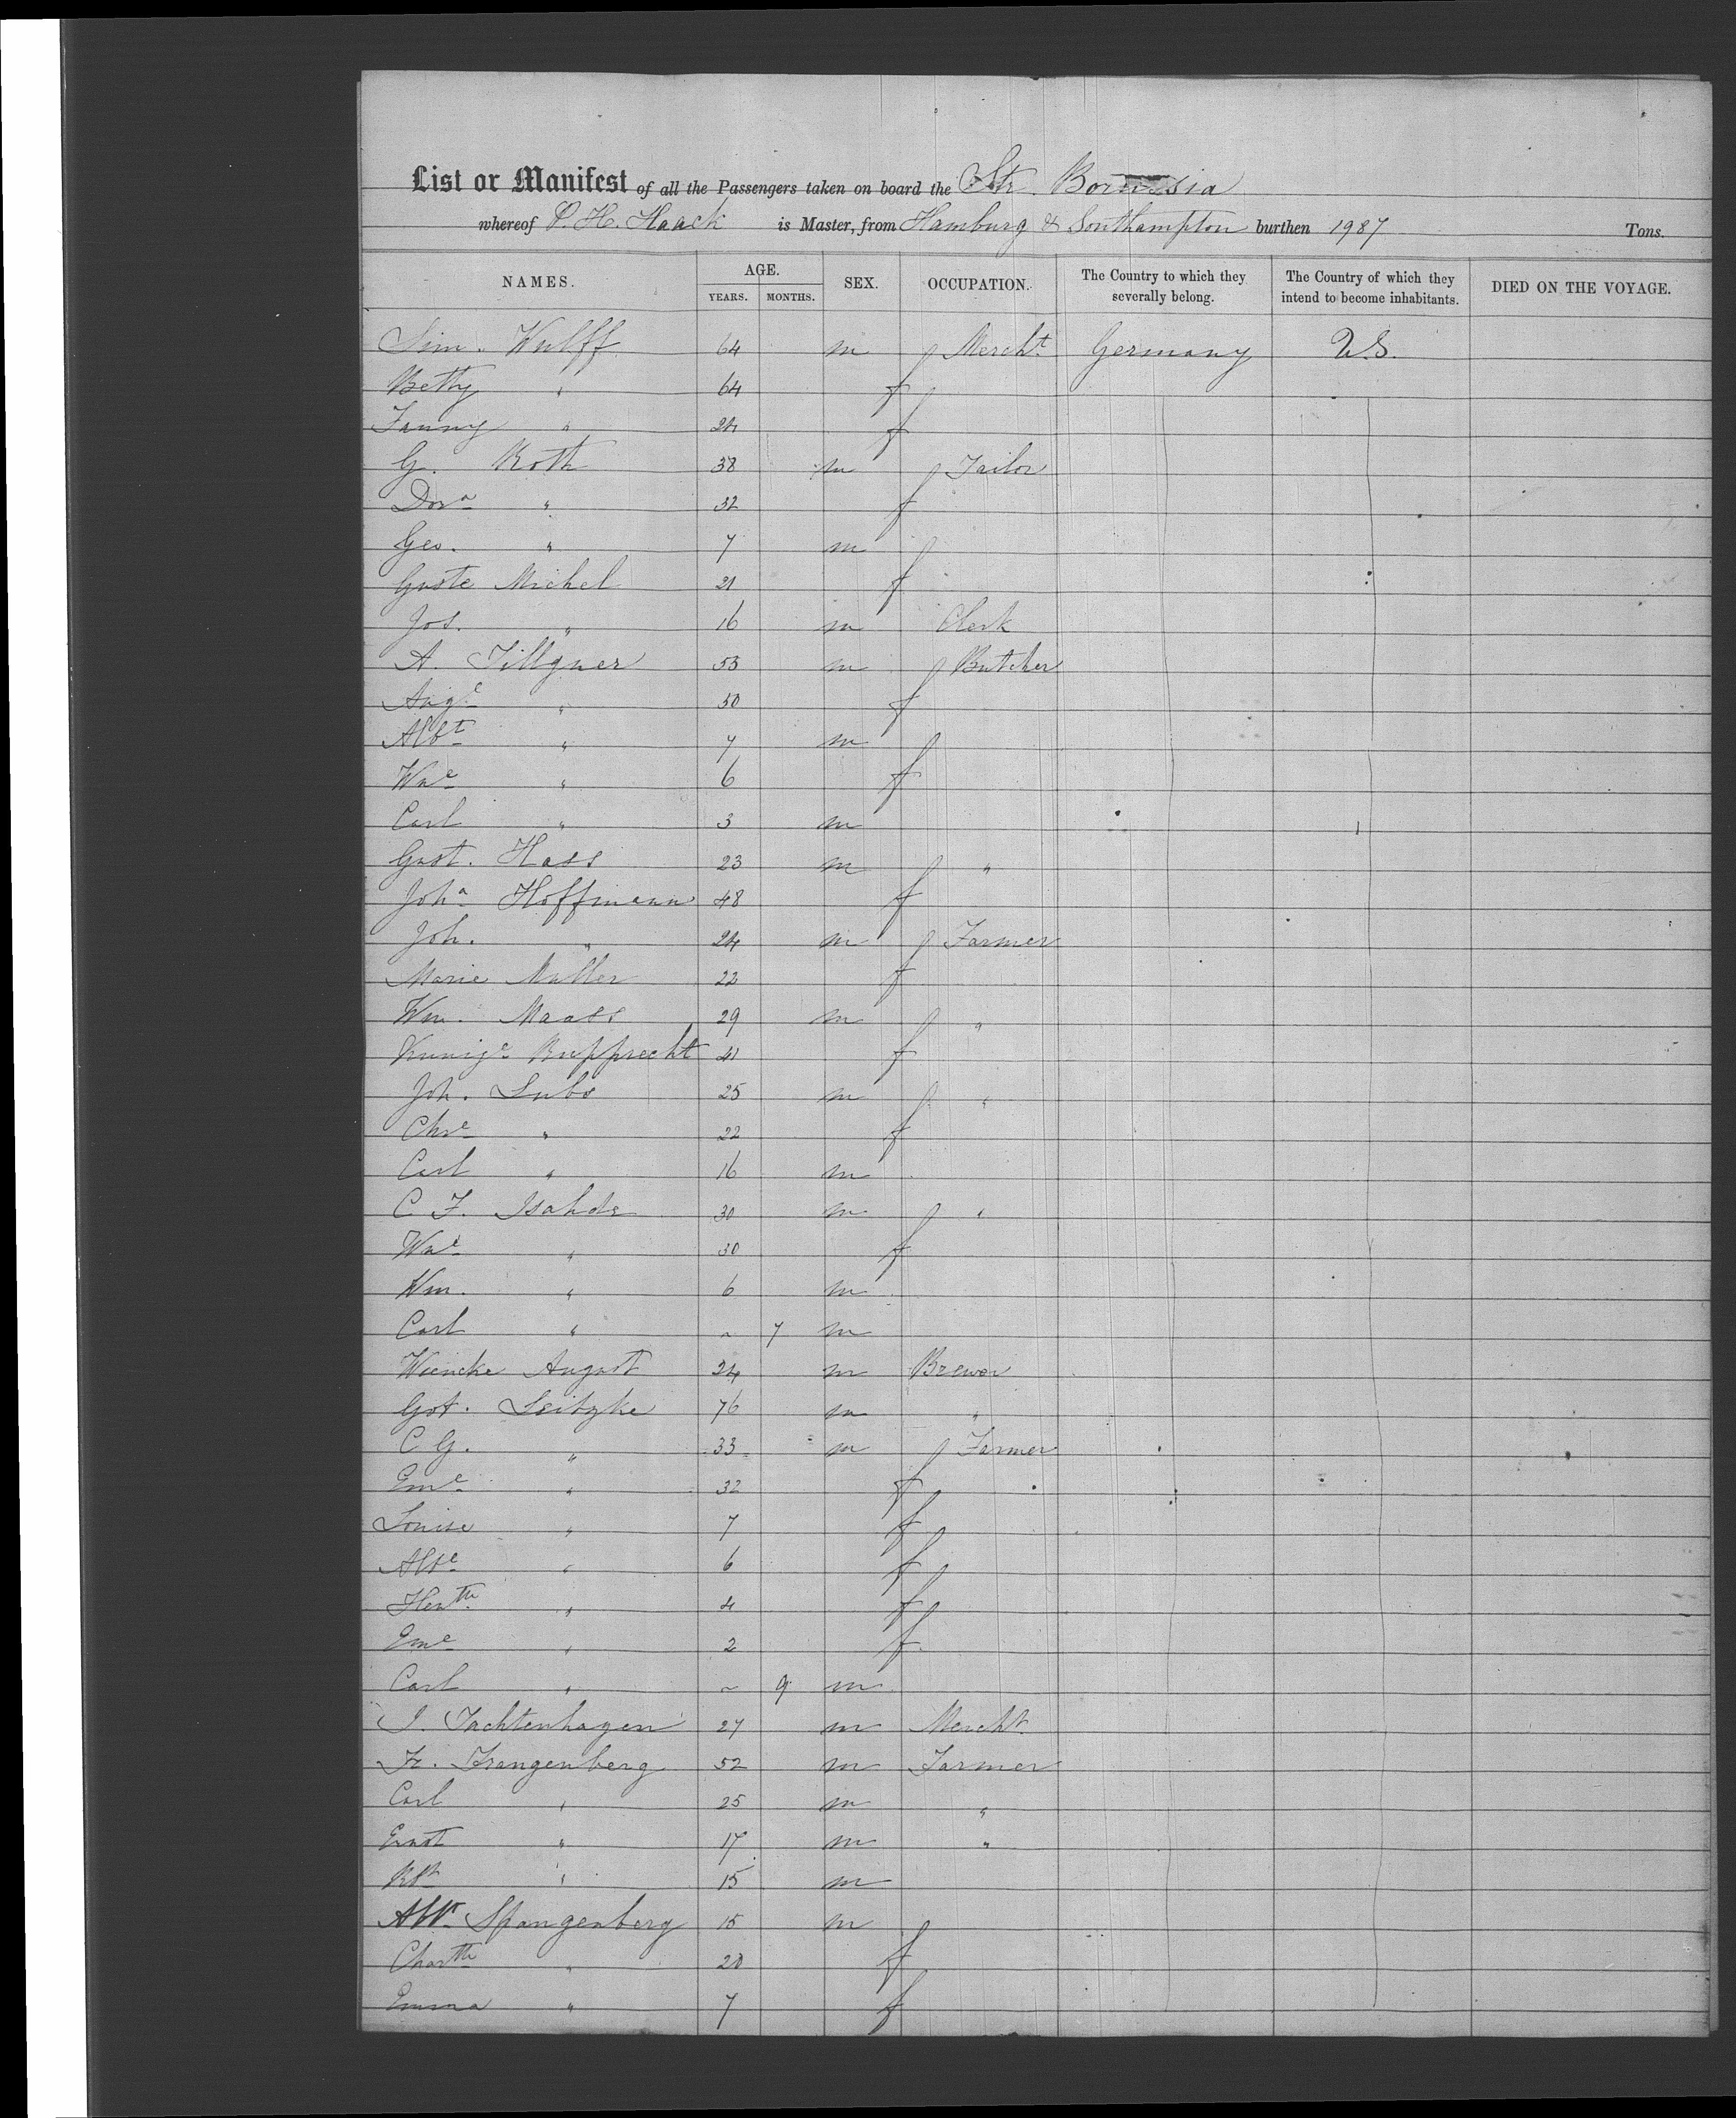 List or Manifest of all the Passengers taken on board the Str. Borussia
whereof P. H. Haack is Master, from Hamburg & Southampton burthen 1987 Tons.
NAMES. AGE. SEX. OCCUPATION. The Country to which they severally belong. The Country of which they intend to become inhabitants. DIED ON THE VOYAGE.
YEARS. MONTHS.
Sim. Wulff 64 m Mercht Germany U.S.
Betty " 64 f
Fanny " 24 f
G. Roth 38 m Tailor
Dora " 32 f
Geo. " 7 m
Guste Michel 21 f
Jos. " 16 m Clerk
A. Tillgner 53 m Butcher
Auge " 50 f
Albt " 7 m
Wne " 6 f
Carl " 3 m
Gust. Hass 23 m "
Joha Hoffmann 48 f
Joh. " 24 m Farmer
Marie Muller 22 f
Wm. Maass 29 m "
Kunige Rupprecht 41 f
Joh. Lubs 25 m "
Chre " 22 f
Carl " 16 m
C. F. 30 m "
Wne " 30 f
Wm. " 6 m
Carl " ~ 7 m
Wiencke August 24 m Brewer
Got. Leitzke 76 m "
C. G. " 33 m Farmer
Eme " 32 f
Louise " 7 f
Albe " 6 f
" 4 f
Eme " 2 f
Carl " ~ 9 m
J. Tachtenhagen 27 m Mercht
Fr. Trangenberg 52 m Farmer
Carl " 25 m "
Ernst " 17 m "
Rbt " 15 m
Albt Spangenberg 15 m
" 20 f
Emma " 7 f